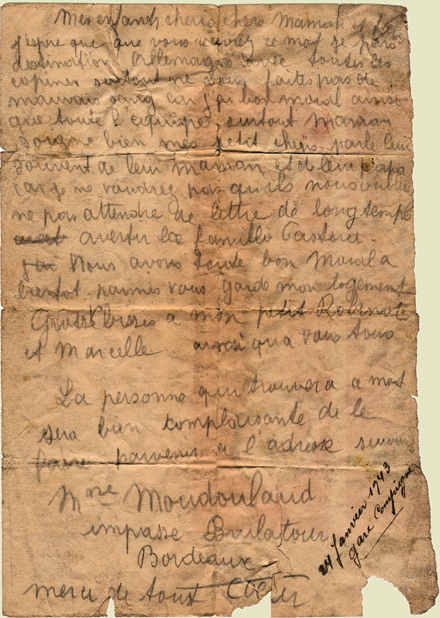 Mes enfants cheris chere Maman
j'espre que que vous recevrez ce mot je pars
destination Allemagne avec toutes les
copines surtout ne vous faites pas de
mauvais sang car j'ai bon moral ainsi
que toute l'equipe surtout Maman
soigne bien mes ptit cheris parle leur
souvent de leur maman et de leur papa
car je ne voudrez pas qu'ils nous oublie
ne pas attendre de lettre de longtemps
avertir la famille Castera
Nous avons toute bon Moral a
bientot garde mon logement
Grosse bises a mon petit Robinote
et Marcelle ainsi qua vous tous
La personne qui trouvera a mot
sera bien complaisante de le
faire parvenir a l'adresse
Mme Moudoulaud
impasse Bulatour
Bordeaux
merci de tout Coeur
24 Janvier 1943
gare Compiegne